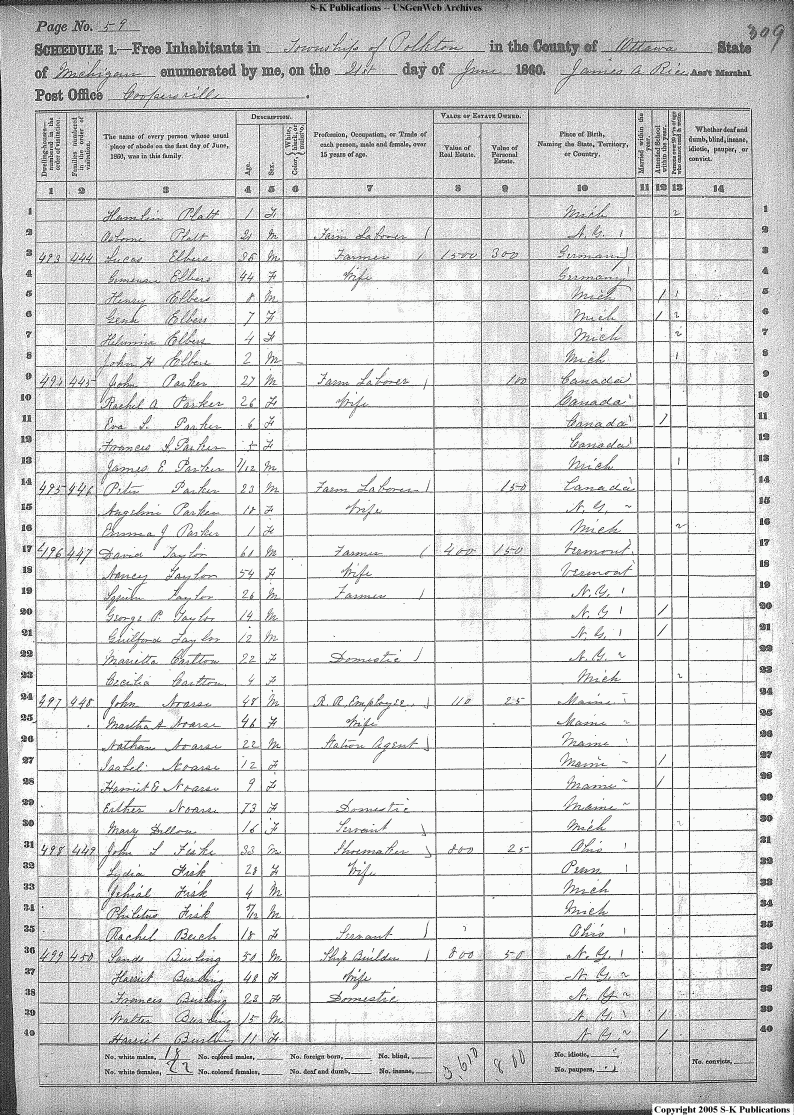 S-K Publications -- USGenWeb Archives
Page No. 59
309
SCHEDULE 1.—Free Inhabitants in Township of Polkton in the County of Ottawa State
of Michigan enumerated by me, on the 21st day of June 1860. James A Rice Ass't Marshal
Post Office Coopersville
Dwelling-houses—numbered in the order of visitation.
Families numbered in the order of visitation.
The name of every person whose usual place of abode on the first day of June, 1860, was in this family
DESCRIPTION.
Age.
Sex.
Color, White, black, or mulatto.
Profession, Occupation, or Trade of each person, male and female, over 15 years of age.
VALUE OF ESTATE OWNED.
Value of Real Estate.
Value of Personal Estate.
Place of Birth, Naming the State, Territory, or Country.
Married within the year.
Attended School within the year.
Whether deaf and dumb, blind, insane, idiotic, pauper, or convict.
1 2 3 4 5 6 7 8 9 10 11 12 13 14
1 Hamlin Platt 1 F Mich 2 1
2 Osborne Platt 21 M Farm Laborer N.Y. 1 2
3 493 444 Lucas Elbers 36 M Farmer 1500 300 Germany 3
4 Elbers 44 F Wife Germany 4
5 Henry Elbers 8 M Mich 1 1 5
6 Elbers 7 F Mich 1 2 6
7 Elbers 4 F Mich 2 7
8 John H Elbers 2 M Mich 1 8
9 494 445 John Parker 27 M Farm Laborer 100 Canada 9
10 Rachel A Parker 26 F Wife Canada 10
11 Eva S. Parker 6 F Canada 1 11
12 Frances S. Parker F Canada 12
13 James E Parker /12 M Mich 1 13
14 495 446 Peter Parker 23 M Farm Laborer 150 Canada 14
15 Angeline Parker 18 F Wife N.Y. " 15
16 Emma J Parker 1 F Mich 2 16
17 496 447 David Taylor 61 M Farmer 400 150 Vermont 17
18 Nancy Taylor 54 F Wife Vermont 18
19 Taylor 26 M Farmer N.Y. 1 19
20 George P. Taylor 14 M N.Y. 1 1 20
21 Guilford Taylor 12 M N.Y. 1 1 21
22 Marietta Carlton 22 F Domestic N.Y. 2 22
23 Cecilia Carlton 4 F Mich 2 23
24 497 448 John Noarse 48 M R. R. Employee 110 25 Maine 24
25 Martha A Noarse 46 F Wife Maine 25
26 Nathan Noarse 22 M Station Agent Maine 26
27 Isabel Noarse 12 F Maine 1 27
28 Harriet E Noarse 9 F Maine 1 28
29 Esther Noarse 73 F Domestic Maine 29
30 Mary Dillon 16 F Servant Mich 30
31 498 449 John S Fiske 33 M Shoemaker 800 25 Ohio 1 31
32 Lydia Fisk 28 F Wife Penn 32
33 Jehial Fisk 4 M Mich 33
34 Philetus Fisk /12 M Mich 34
35 Rachel Beich 18 F Servant Ohio 1 35
36 499 450 Sands Burling 50 M Ship Builder 800 50 N.Y. 1 36
37 Harriet Burling 48 F Wife N.Y. 2 37
38 Frances Burling 23 F Domestic N.Y. 2 38
39 Walter Burling 15 M N.Y. 1 1 39
40 Harriet Burling 11 F N.Y. 2 1 40
No. white males, 18 No. colored males, No. foreign born, No. blind, 3610 800 No. idiotic, No. convicts,
No. white females, 22 No. colored females, No. deaf and dumb, No. insane, No. paupers,
Copyright 2005 S-K Publications